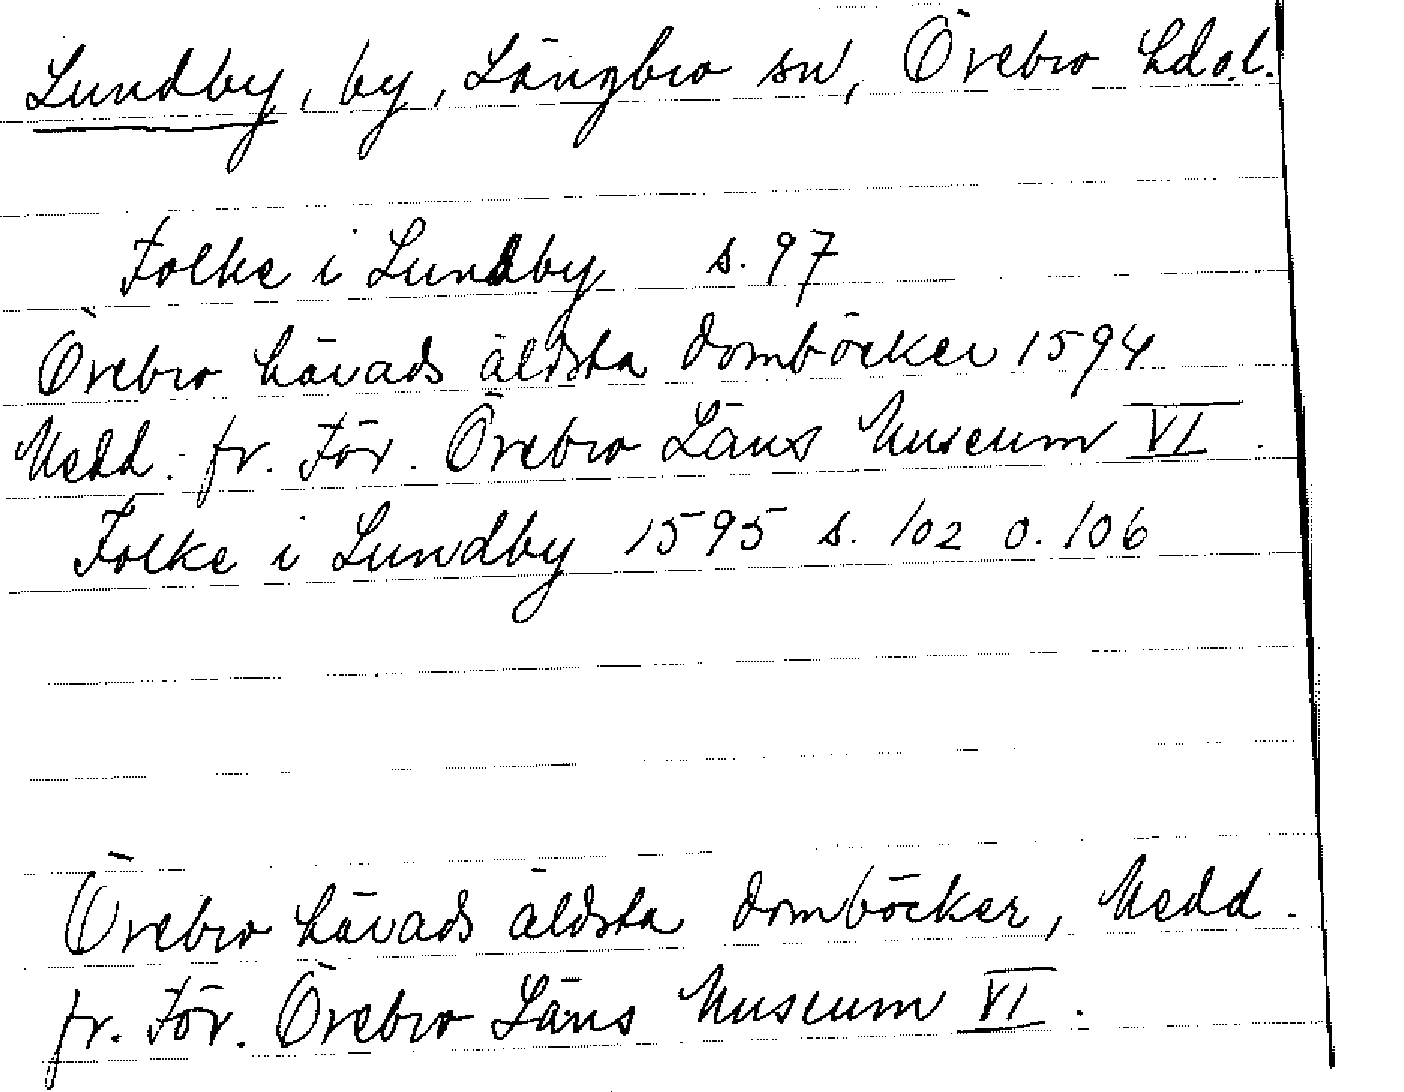 Lundby, by, Längbro sn, Örebro hd o.l.
Folke i Lundby s. 97
Örebro härads äldsta domböcker 1594
Medd. fr. För. Örebro Läns Museum VI.
Folke i Lundby 1595 s. 102 o. 106
Örebro härads äldsta domböcker, Medd.
fr. För. Örebro Läns Museum VI.